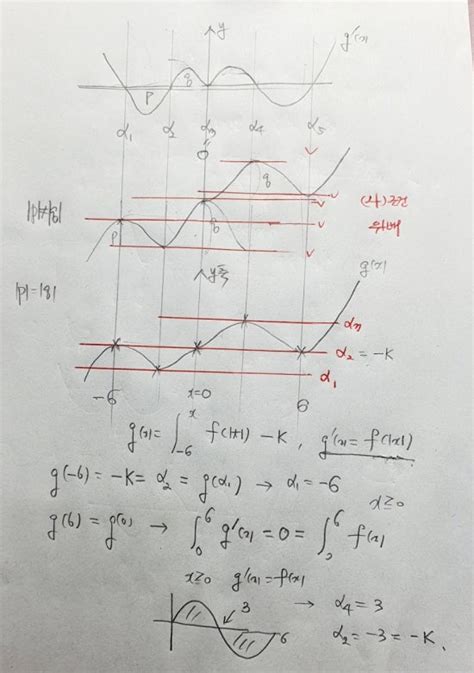 y
g'(x)
p q
α₁ α₂ α₃ α₄ α₅
0
q
(나)조건
위배
|p|≠|q|
p q
y축
g(x)
|p|=|q|
α₂ = -K
α₁
-6 x=0 6
g(x) = ∫₋₆ˣ f(|t|) - K, g'(x) = f(|x|)
g(-6) = -K = α₂ = g(α₁) → α₁ = -6
x≥0
g(6) = g(0) → ∫₀⁶ g'(x) = 0 = ∫₀⁶ f(x)
x≥0 g'(x) = f(x)
3 → α₄ = 3
6 α₂ = -3 = -K.